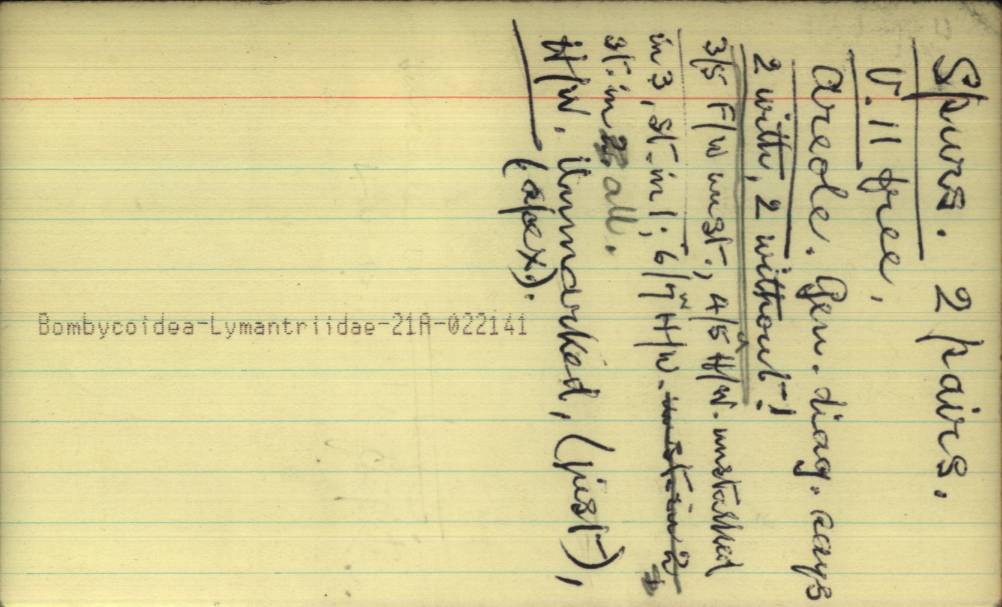 Spurs. 2 pairs.
V. 11 free.
Areole. Gen. diag. says
2 with, 2 without!
3/5 F/W unst., 4/5 H/W. unstalked
in 3, st. in 1; 6/7 H/W. in st in 2
st. in all.
H/W. Unmarked, (just),
(apex).
Bombycoidea-Lymantriidae-21A-022141